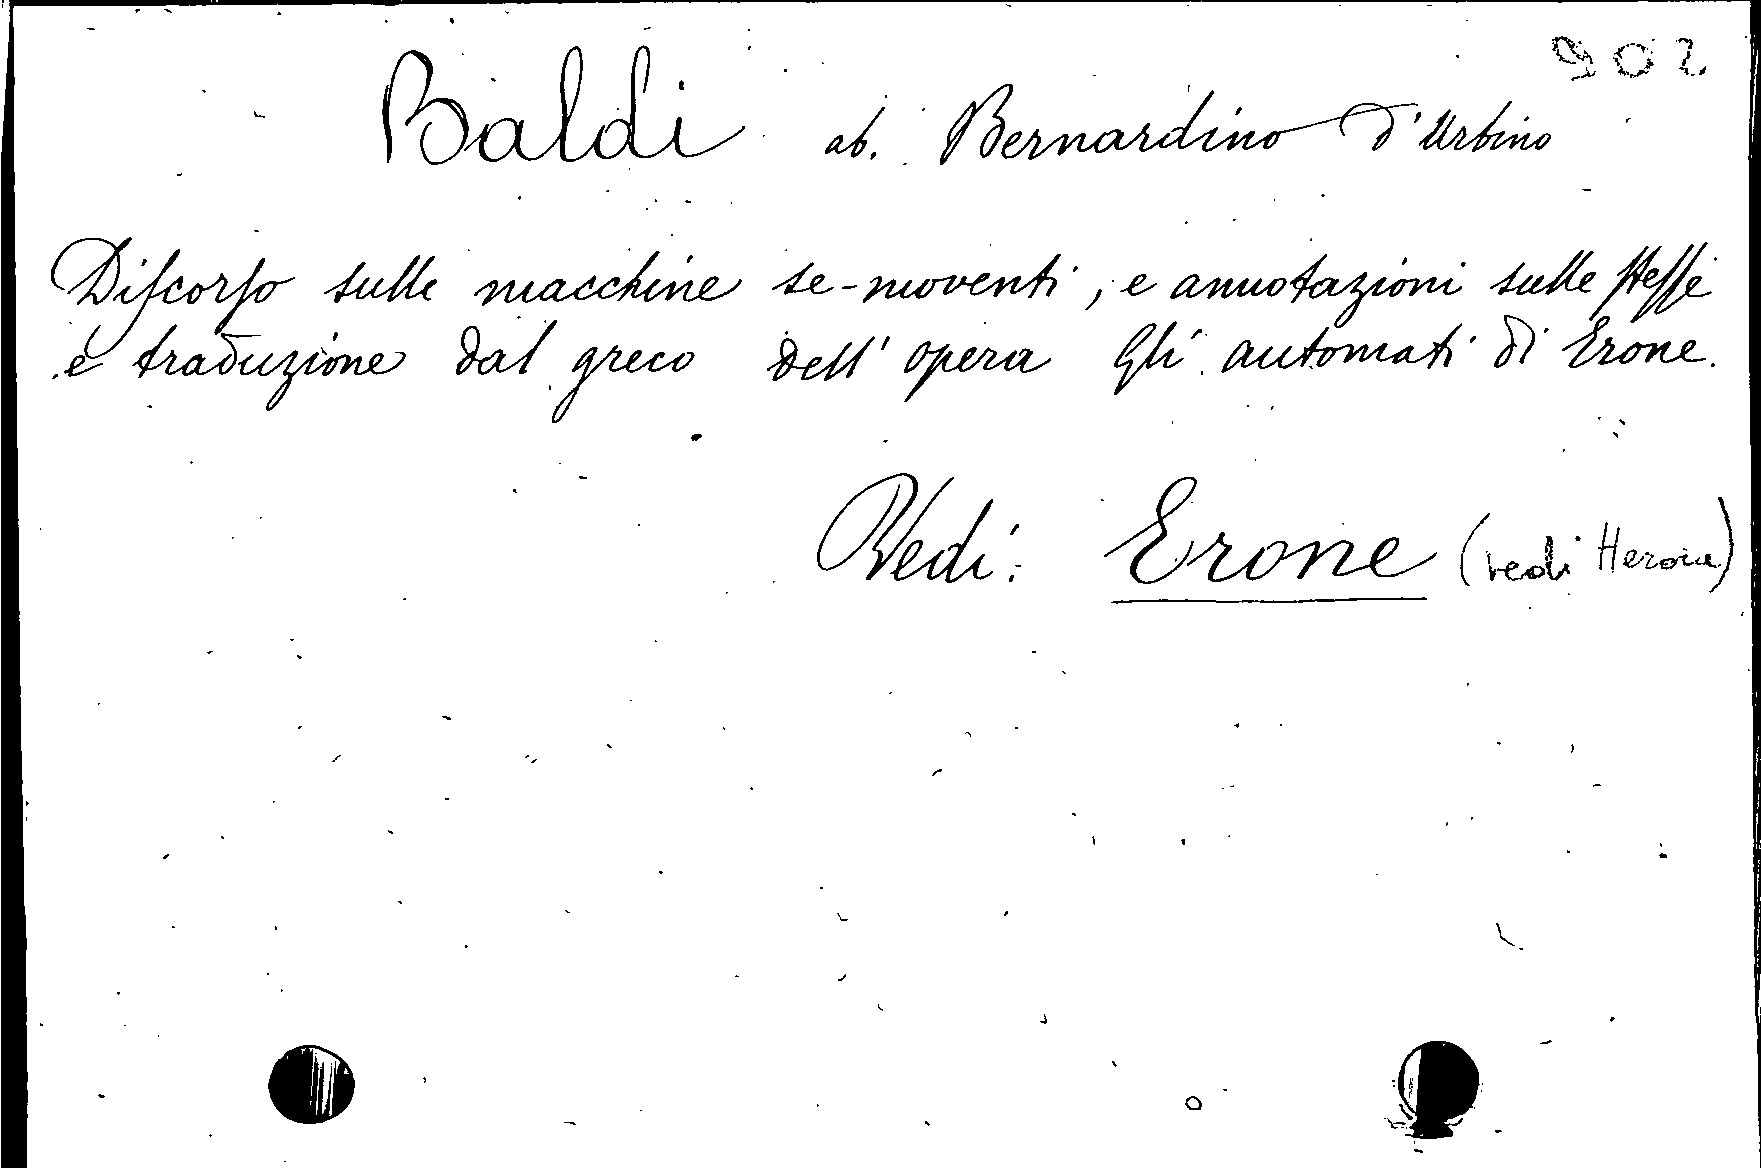 902
Baldi ab. Bernardino d'Urbino
Diſcorſo sulle macchine se-moventi, e annotazioni sulle ſteſſe
e traduzione dal greco dell'opera Gli automati di Erone.
Vedi: Erone (vedi Herone)